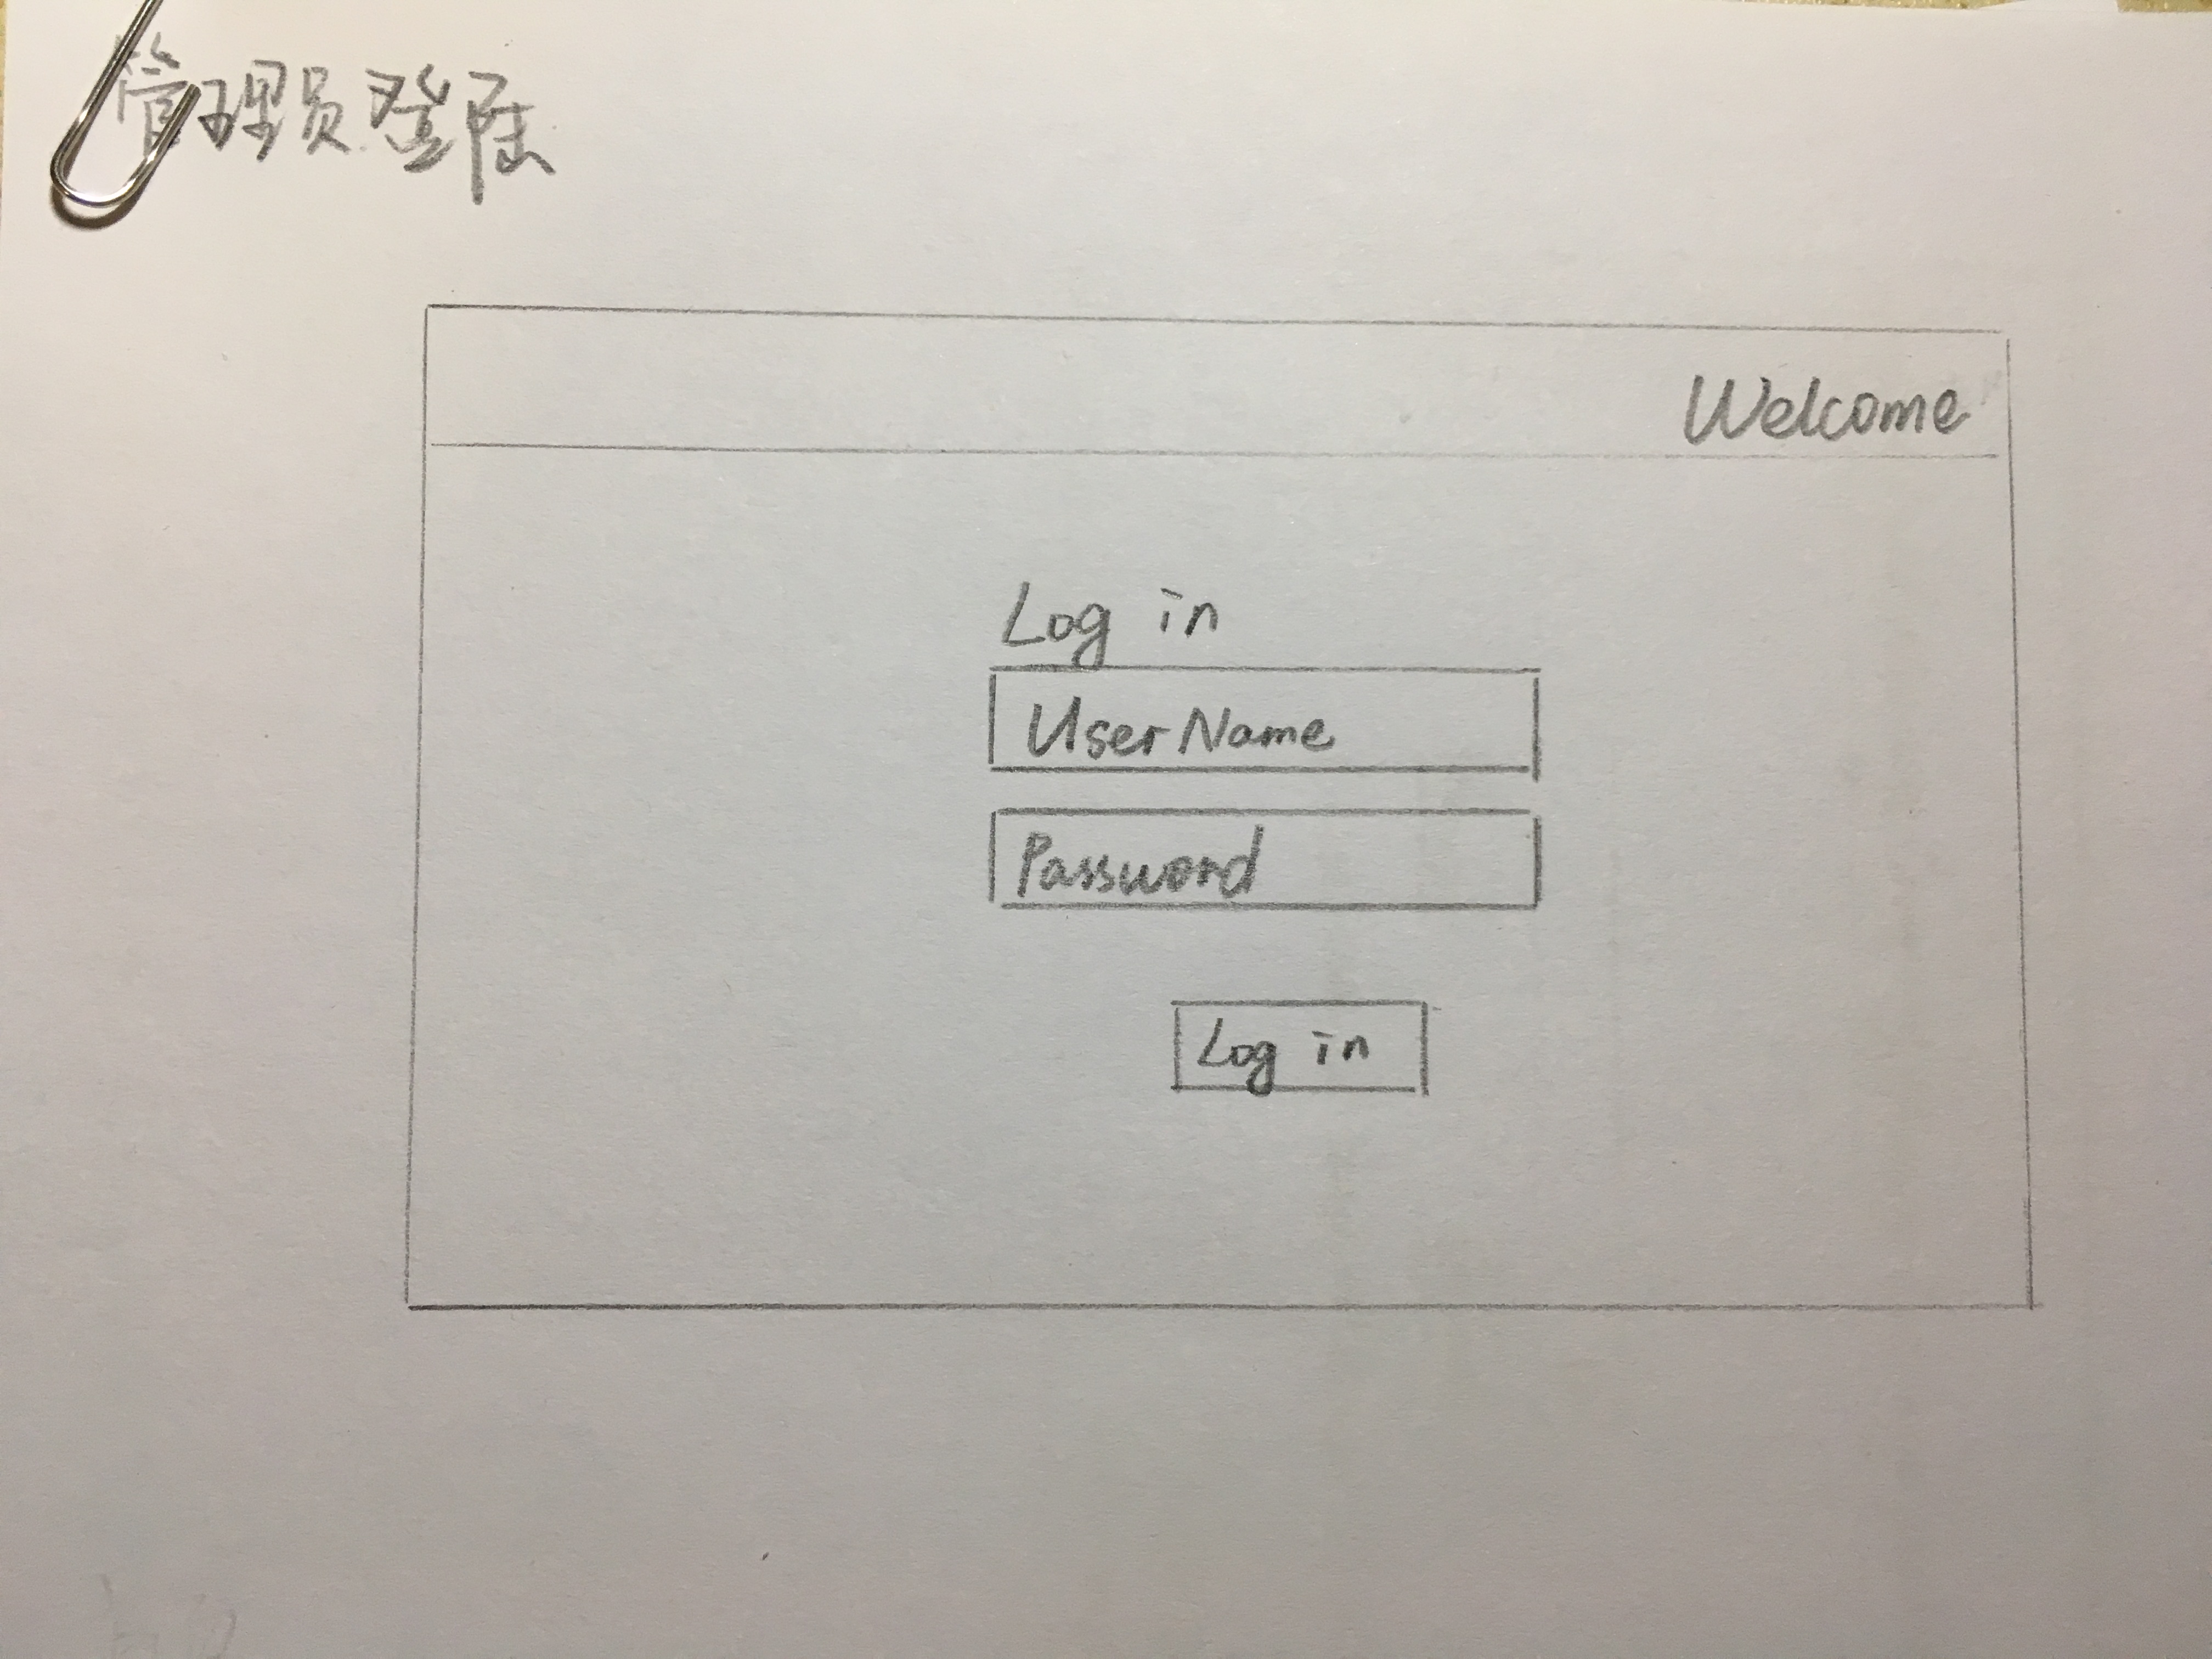 管理员登陆
Welcome
Log in
UserName
Password
Log in